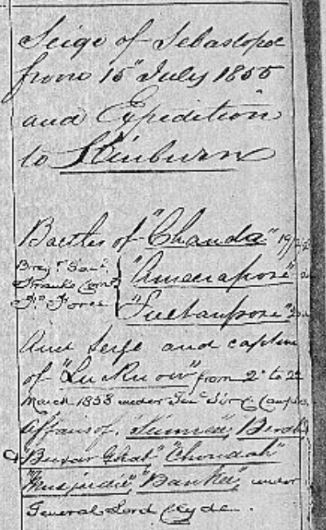 Seige of Sebastopol
from 15" July 1855
and Expedition
to Kinburn
Battles of "Chanda" 19/2
Brigr Genl
Franks Comg
Fd Force
"Ameerapore"
"Sultanpore"
And seige and capture
of "Lucknow" from 2d to 22
March 1858 under Genl Sir C Campbell
Affairs of
"Buxar Ghat", "Chundah"
"Musjidia", "Bankee", under
General Lord Clyde.